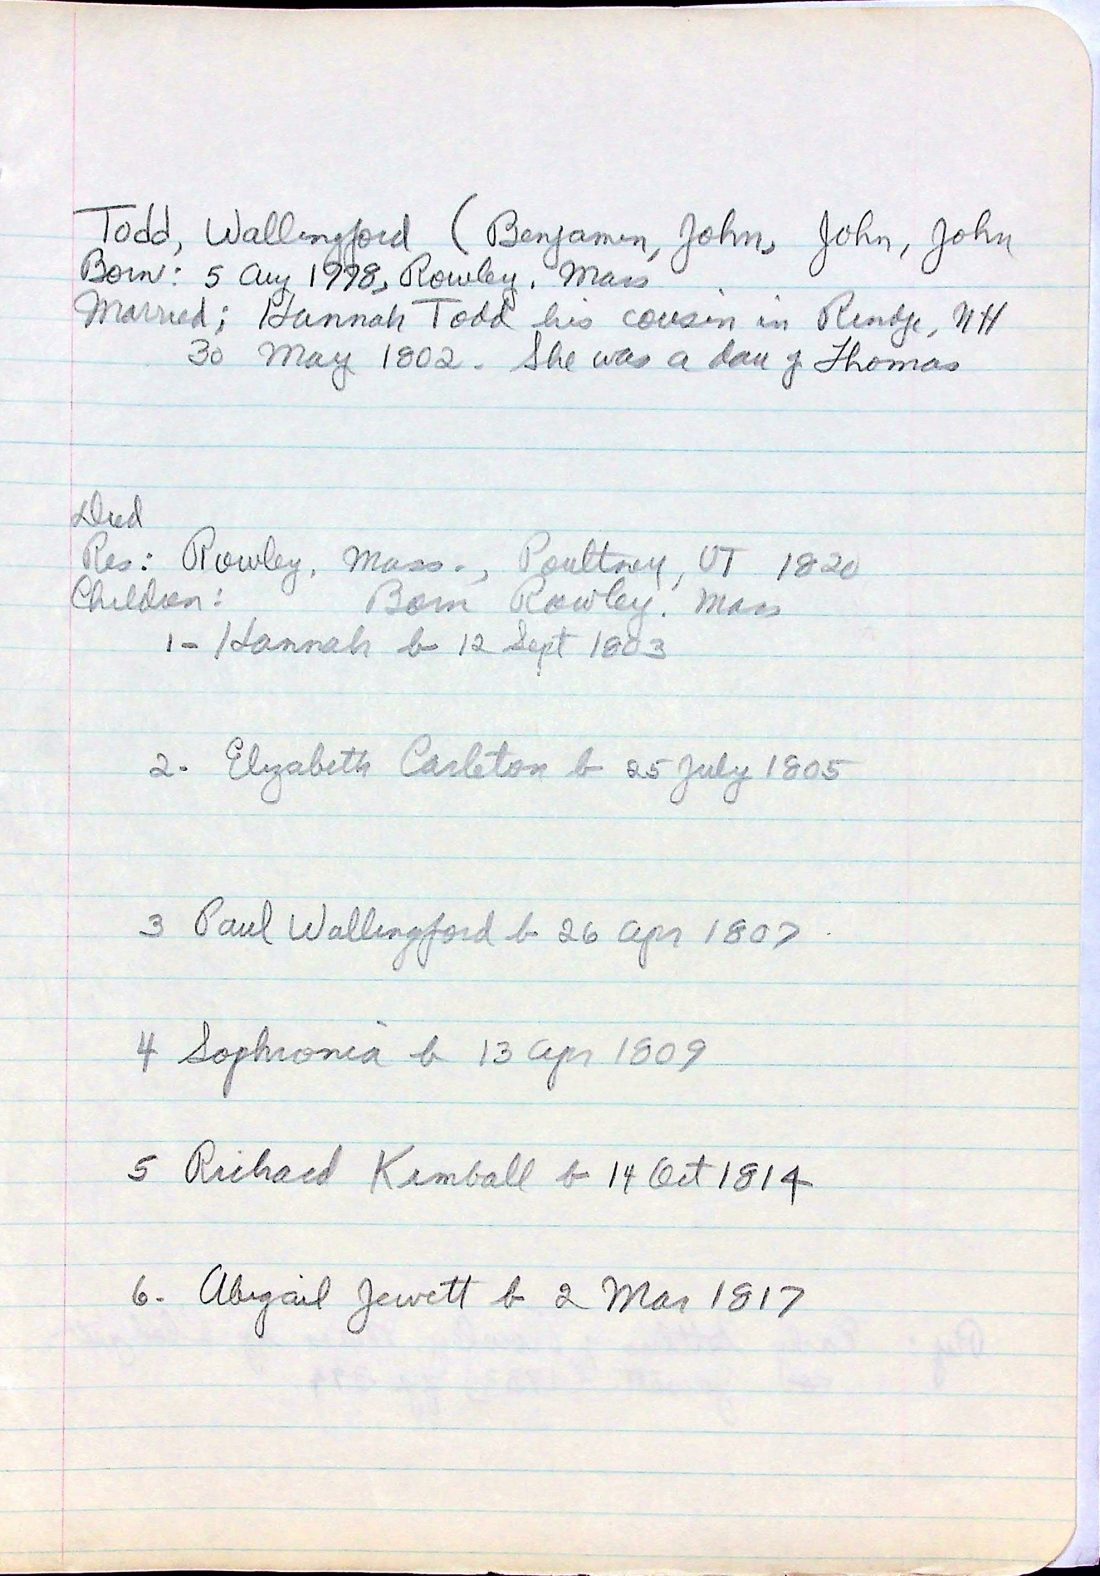 Todd, Wallingford (Benjamin, John, John, John
Born: 5 Aug 1778, Rowley, Mass
Married; Hannah Todd his cousin in Rindge, NH
30 May 1802. She was a dau of Thomas
Died
Res: Rowley, Mass., Poultney, VT 1820
Children: Born Rowley, Mass
1- Hannah b 12 Sept 1803
2- Elizabeth Carleton b 25 July 1805
3 Paul Wallingford b 26 Apr 1807
4 Sophronia b 13 Apr 1809
5 Richard Kimball b 14 Oct 1814
6- Abigail Jewett b 2 Mar 1817